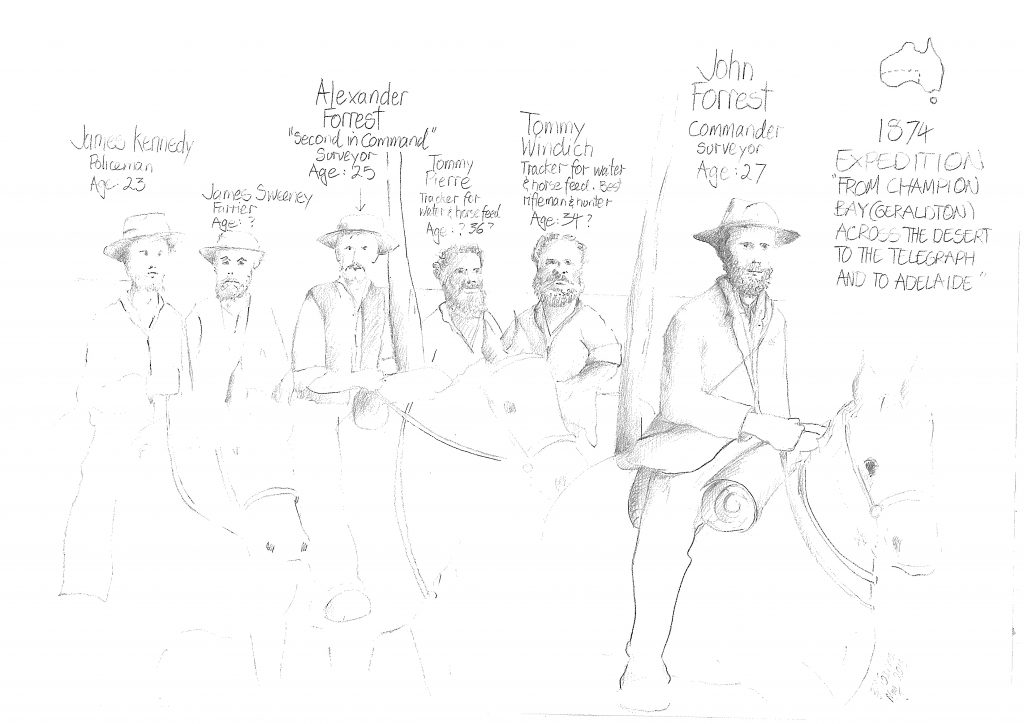 James Kennedy
Policeman
Age: 23
James Sweeney
Farrier
Age: ?
Alexander
Forrest
"Second in Command"
Surveyor
Age: 25
Tommy
Pierre
Tracker for
water & horse feed.
Age: ? 36?
Tommy
Windich
Tracker for water
& horse feed. Best
rifleman & hunter
Age: 34?
John
Forrest
Commander
Surveyor
Age: 27
1874
EXPEDITION
"FROM CHAMPION
BAY (GERALDTON)
ACROSS THE DESERT
TO THE TELEGRAPH
AND TO ADELAIDE"